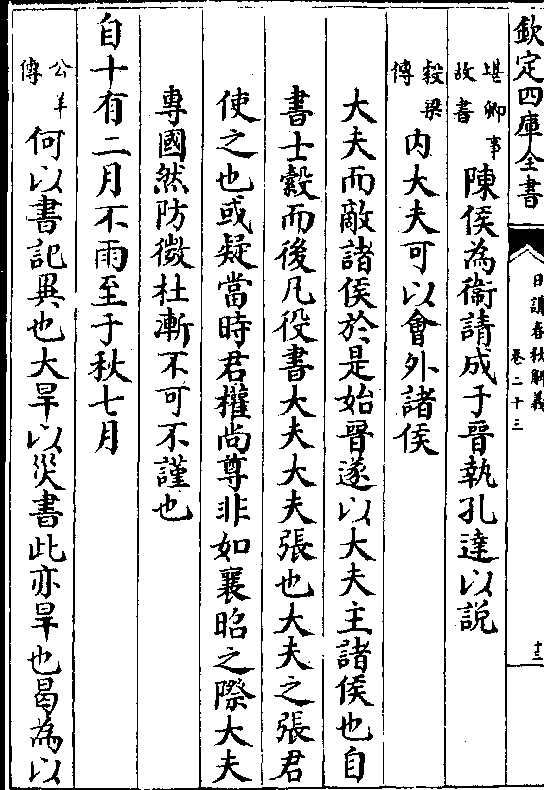 欽定四庫全書
日講春秋解義
卷二十三
十三
堪卿事
故書
陳侯為衞請成于晉執孔達以說
穀梁
傳
内大夫可以會外諸侯
大夫而敵諸侯於是始晉遂以大夫主諸侯也自
書士縠而後凡役書大夫大夫張也大夫之張君
使之也或疑當時君權尚尊非如襄昭之際大夫
專國然防微杜漸不可不謹也
自十有二月不雨至于秋七月
公羊
傳
何以書記異也大旱以災書此亦旱也曷為以